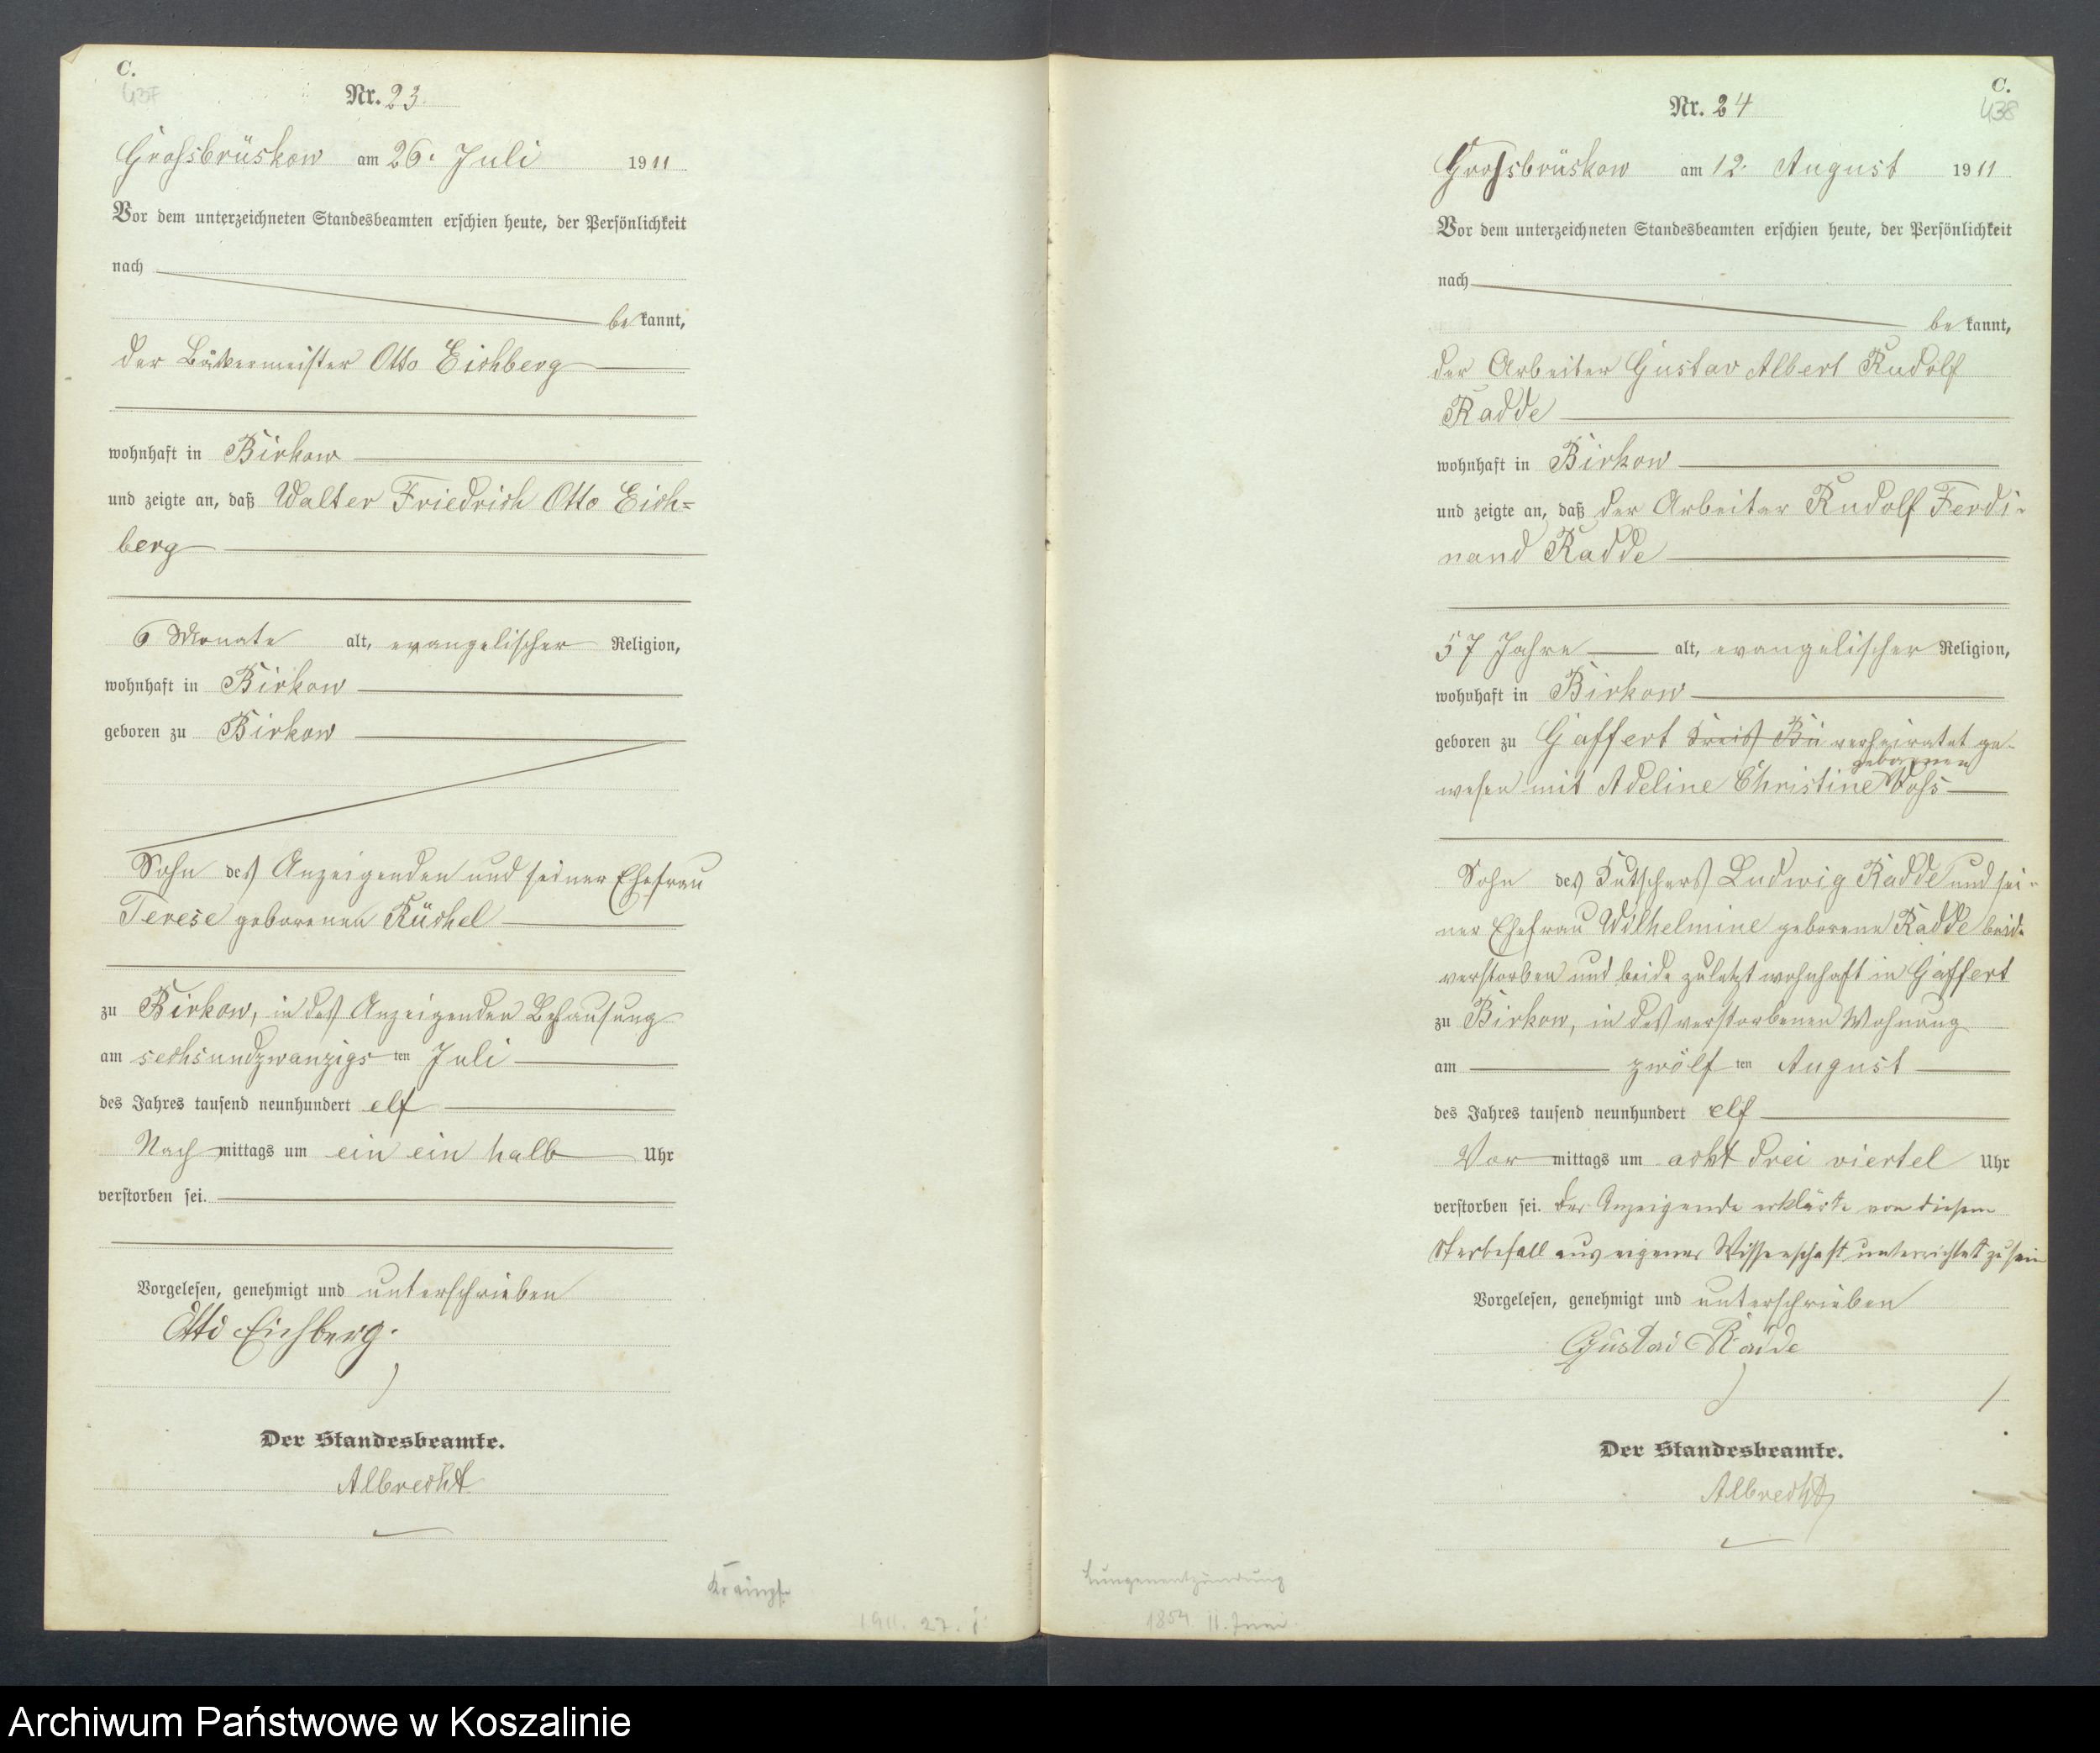 C.
437
Nr. 23.
Grossbrüskow am 26. Juli 1911
Vor dem unterzeichneten Standesbeamten erschien heute, der Persönlichkeit
nach
be kannt,
der Bäckermeister Otto Eichberg
wohnhaft in Birkow
und zeigte an, daß Walter Friedrich Otto Eich=
berg
6 Monate alt, evangelischer Religion,
wohnhaft in Birkow
geboren zu Birkow
Sohn des Anzeigenden und seiner Ehefrau
Terese geborenen Küchel
zu Birkow, in des Anzeigenden Behausung
am sechsundzwanzigs ten Juli
des Jahres tausend neunhundert elf
Nach mittags um ein ein halb Uhr
verstorben sei.
Vorgelesen, genehmigt und unterschrieben
Otto Eichberg.
Der Standesbeamte.
Albrecht
Krämpfe
1911. 27. 1.
C.
438
Nr. 24
Grossbrüskow am 12. August 1911
Vor dem unterzeichneten Standesbeamten erschien heute, der Persönlichkeit
nach
be kannt,
der Arbeiter Gustav Albert Rudolf
Radde
wohnhaft in Birkow
und zeigte an, daß der Arbeiter Rudolf Ferdi-
nand Radde
57 Jahre alt, evangelischer Religion,
wohnhaft in Birkow
geboren zu Gaffert Kreis Bü verheiratet ge-
geborenen
wesen mit Adeline Christine Voss
Sohn des Kutschers Ludwig Radde und sei-
ner Ehefrau Wilhelmine geborene Radde beide
verstorben und beide zuletzt wohnhaft in Gaffert
zu Birkow, in des verstorbenen Wohnung
am zwölf ten August
des Jahres tausend neunhundert elf
Vor mittags um acht drei viertel Uhr
verstorben sei. Der Anzeigende erklärte von diesem
Sterbefall aus eigener Wissenschaft unterrichtet zu sein
Vorgelesen, genehmigt und unterschrieben
Gustav Radde
Der Standesbeamte.
Albrecht
Lungenentzündung
1854 11. Juni
Archiwum Państwowe w Koszalinie